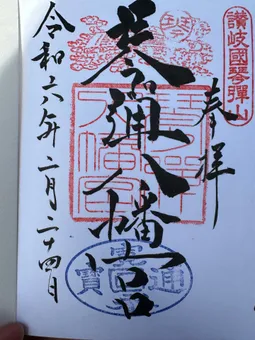 讚岐國琴彈山
奉拝
琴
琴彈八幡宮
琴彈
八幡宮
令和六年二月二十四日